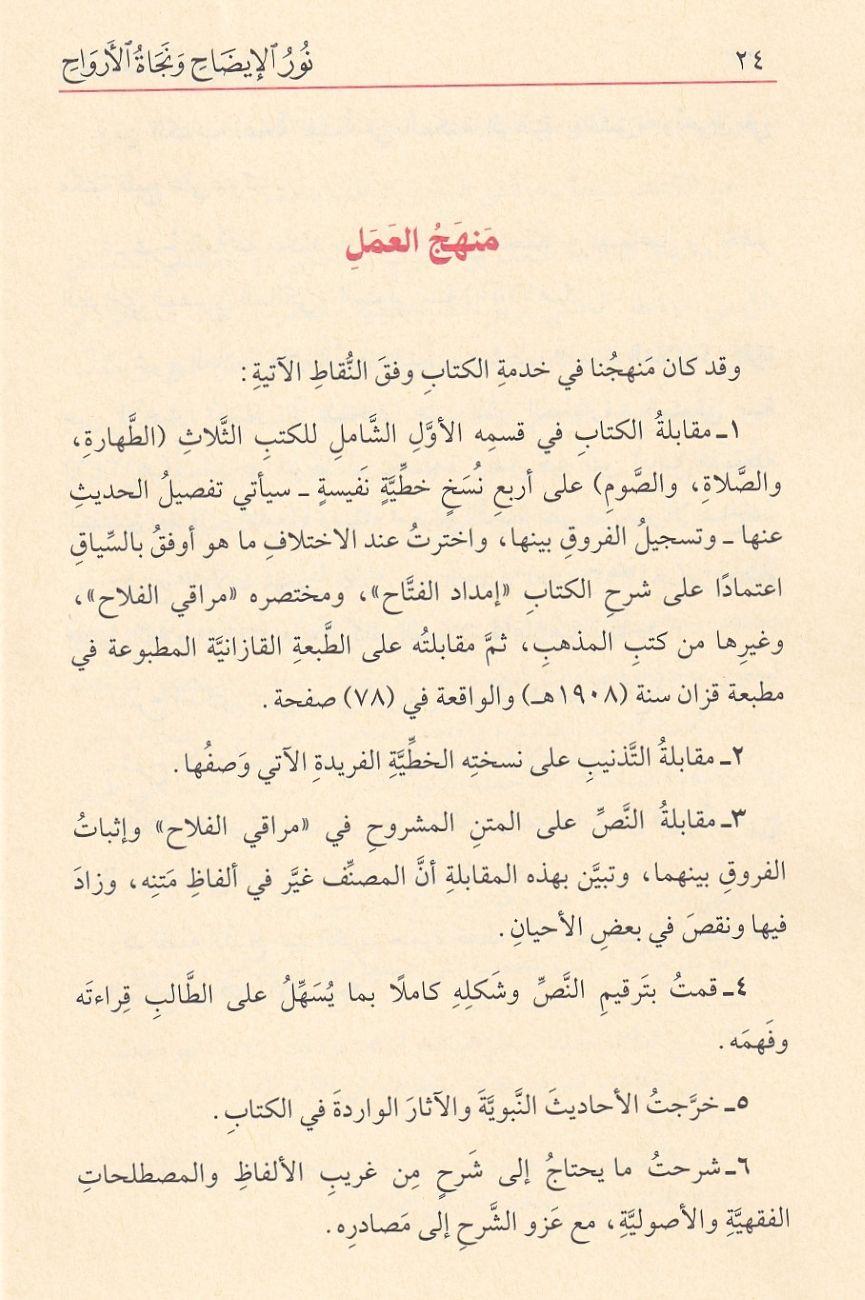 ٢٤
نُورُ ٱلإِيضَاحِ وَنَجَاةُ ٱلأَرْوَاحِ
مَنهَجُ العَمَلِ
وقد كان مَنهجُنا في خدمةِ الكتابِ وفقَ النُّقاطِ الآتيةِ:
١ـ مقابلةُ الكتابِ في قسمِه الأوَّلِ الشَّاملِ للكتبِ الثَّلاثِ (الطَّهارةِ،
والصَّلاةِ، والصَّومِ) على أربعِ نُسَخٍ خطِّيَّةٍ نَفيسةٍ ـ سيأتي تفصيلُ الحديثِ
عنها ـ وتسجيلُ الفروقِ بينها، واخترتُ عند الاختلافِ ما هو أوفقُ بالسِّياقِ
اعتمادًا على شرحِ الكتابِ «إمداد الفتَّاح»، ومختصره «مراقي الفلاح»،
وغيرِها من كتبِ المذهبِ، ثمَّ مقابلتُه على الطَّبعةِ القازانيَّة المطبوعة في
مطبعة قزان سنة (١٩٠٨هـ) والواقعة في (٧٨) صفحة.
٢ـ مقابلةُ التَّذنيبِ على نسختِه الخطِّيَّةِ الفريدةِ الآتي وَصفُها.
٣ـ مقابلةُ النَّصِّ على المتنِ المشروحِ في «مراقي الفلاح» وإثباتُ
الفروقِ بينهما، وتبيَّن بهذه المقابلةِ أنَّ المصنِّف غيَّر في ألفاظِ مَتنِه، وزادَ
فيها ونقصَ في بعضِ الأحيانِ.
٤ـ قمتُ بتَرقيمِ النَّصِّ وشَكلِهِ كاملًا بما يُسَهِّلُ على الطَّالبِ قِراءتَه
وفَهمَه.
٥ـ خرَّجتُ الأحاديثَ النَّبويَّةَ والآثارَ الواردةَ في الكتابِ.
٦ـ شرحتُ ما يحتاجُ إلى شَرحٍ مِن غريبِ الألفاظِ والمصطلحاتِ
الفقهيَّةِ والأصوليَّةِ، مع عَزوِ الشَّرحِ إلى مَصادرِه.